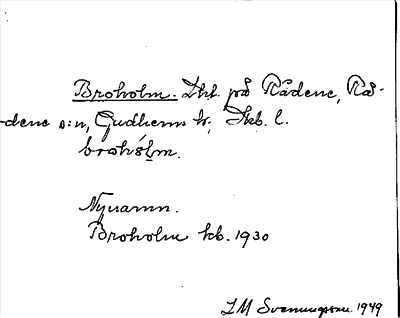 Broholm. Lht. på Rådene, Rå-
dene s:n, Gudhems hd, Skb. l.
brohólm.
Nynamn.
Broholm kb. 1930
I M Svenungsson. 1949